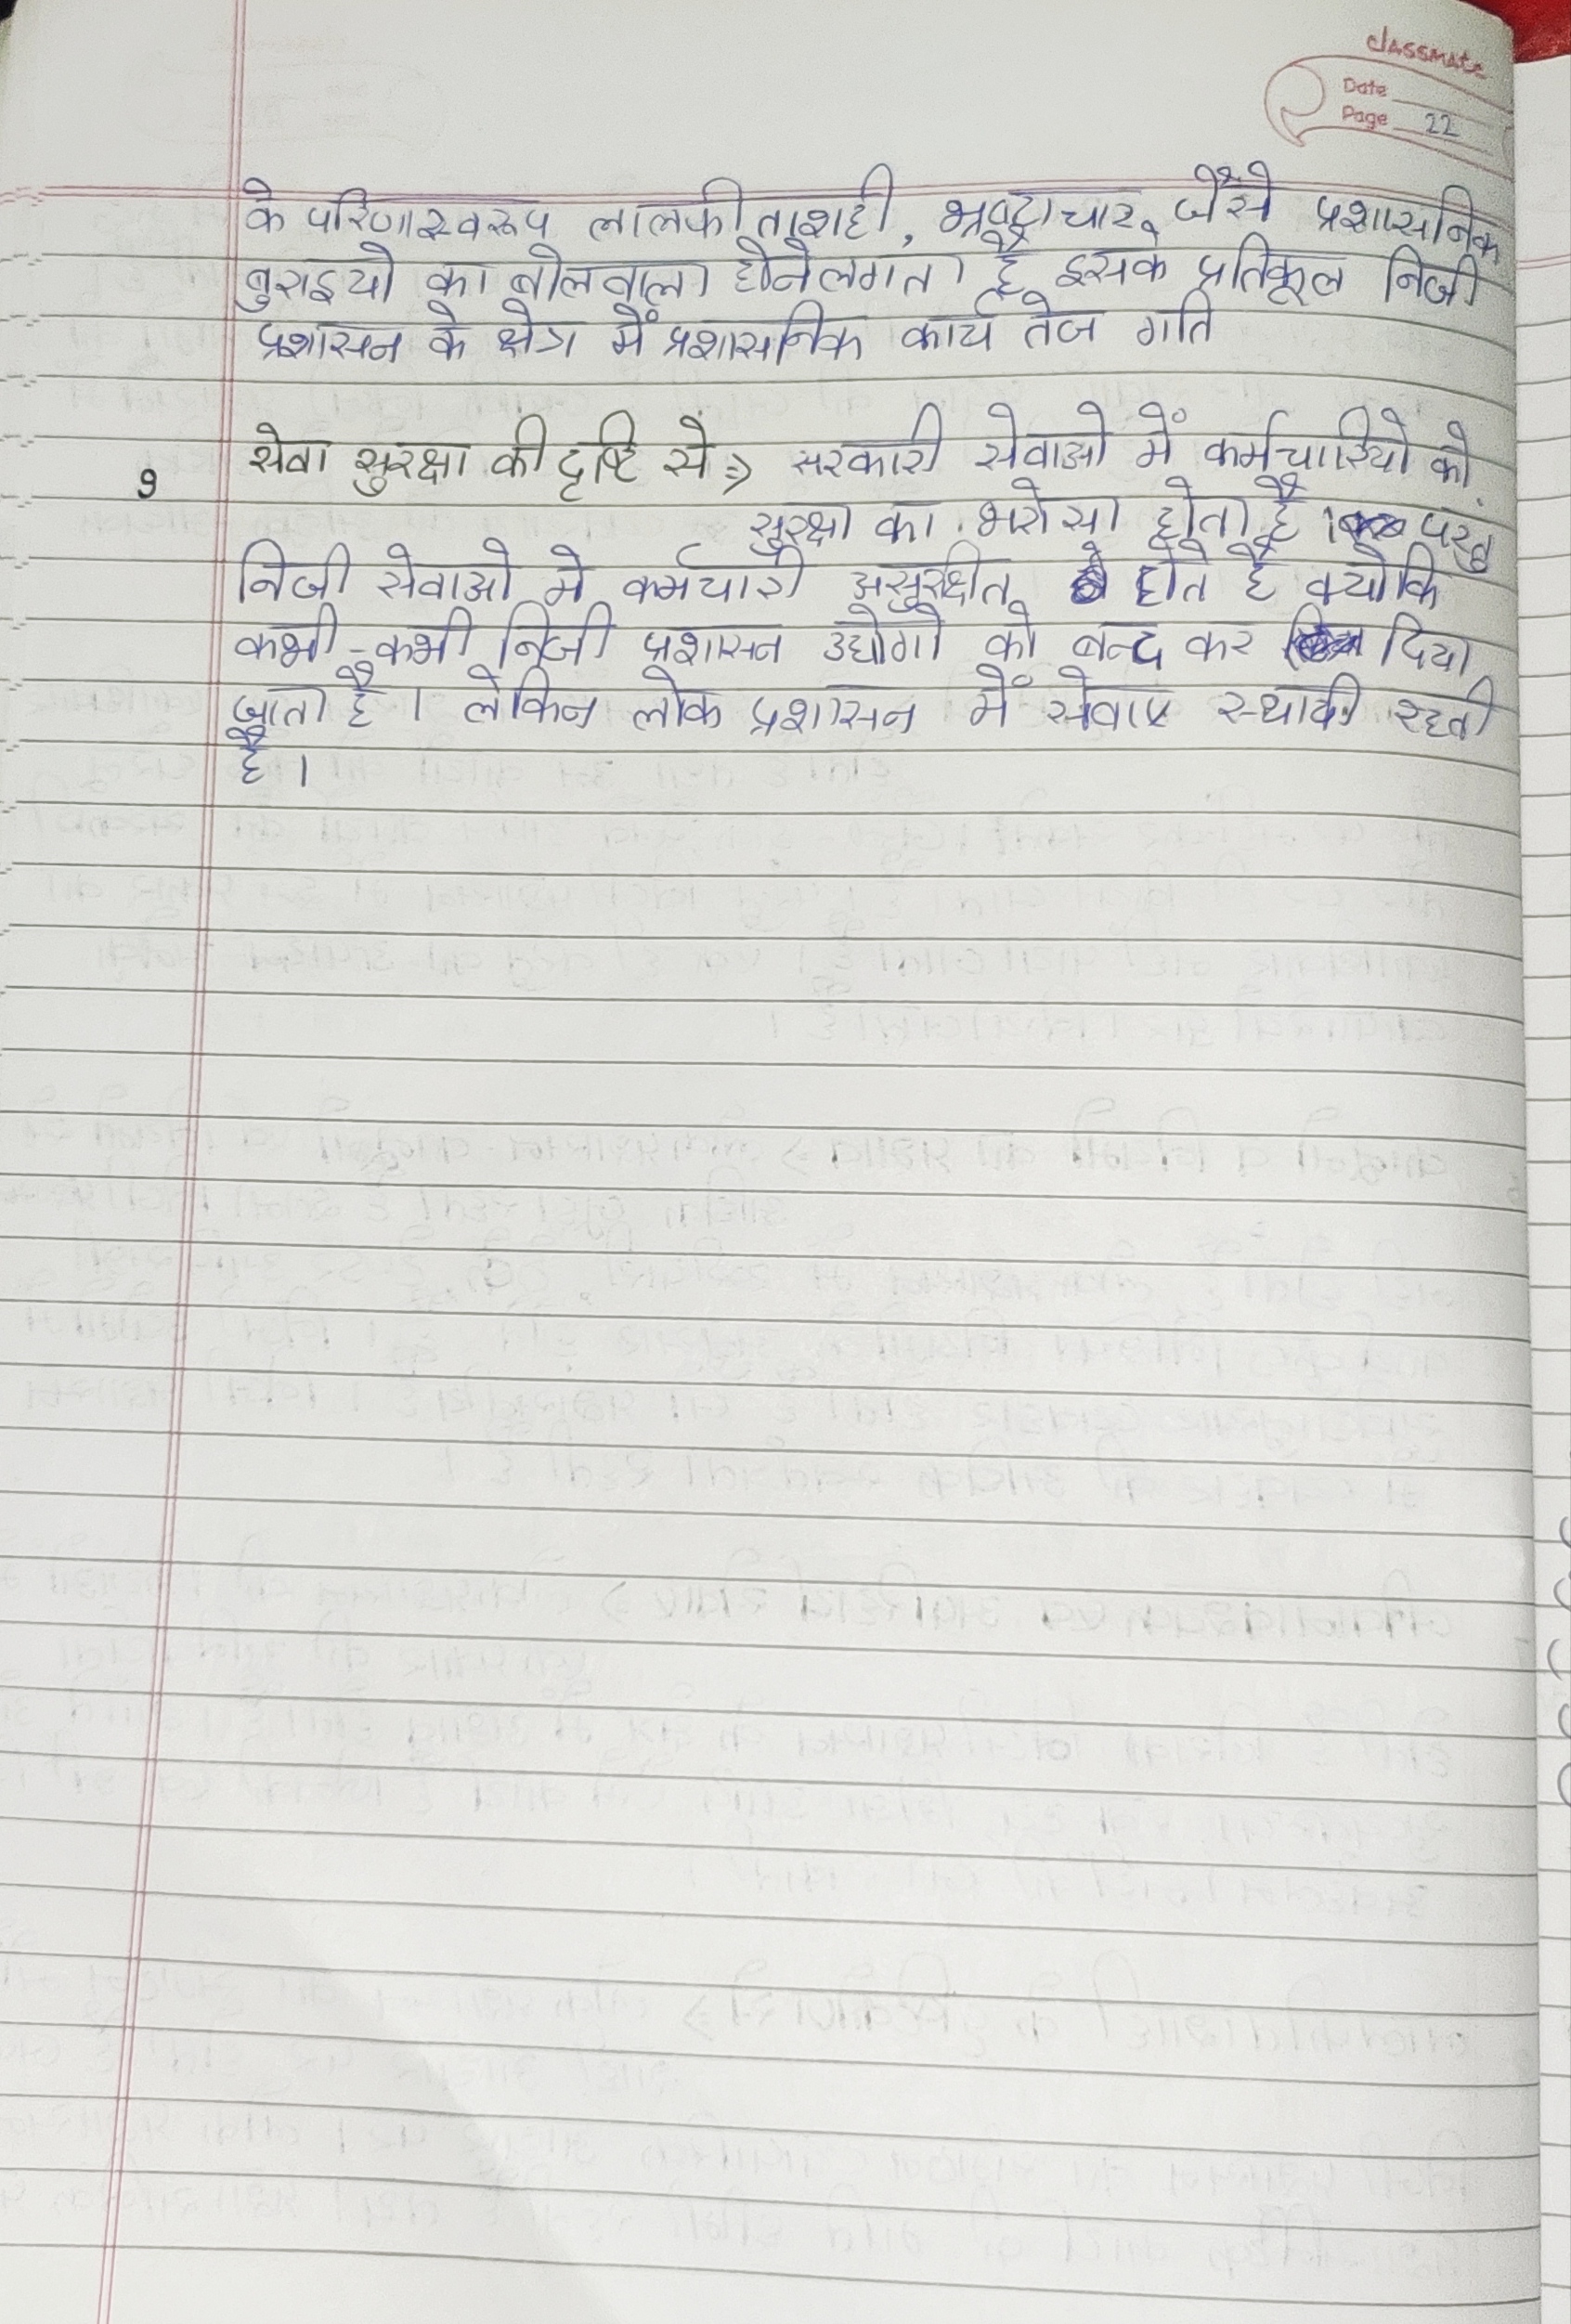 classmate
Date
Page 22
के परिणास्वरूप लालफीताशही, भ्रष्टाचार जैसे प्रशासनिक
बुराइयो का बोलवाला होनेलगता है इसके प्रतिकूल निजी
प्रशासन के क्षेत्र में प्रशासनिक कार्य तेज गति
9 सेवा सुरक्षा की दृष्टि से ⇒ सरकारी सेवाओ में कर्मचारियो को
सुरक्षा का भरोसा होता है । परंतु
निजी सेवाओ मे कर्मचारी असुरक्षित होते है क्योकि
कभी-कभी निजी प्रशासन उद्योगो को बन्द कर दिया
जाता है । लेकिन लोक प्रशासन में सेवाए स्थायी रहती
है ।